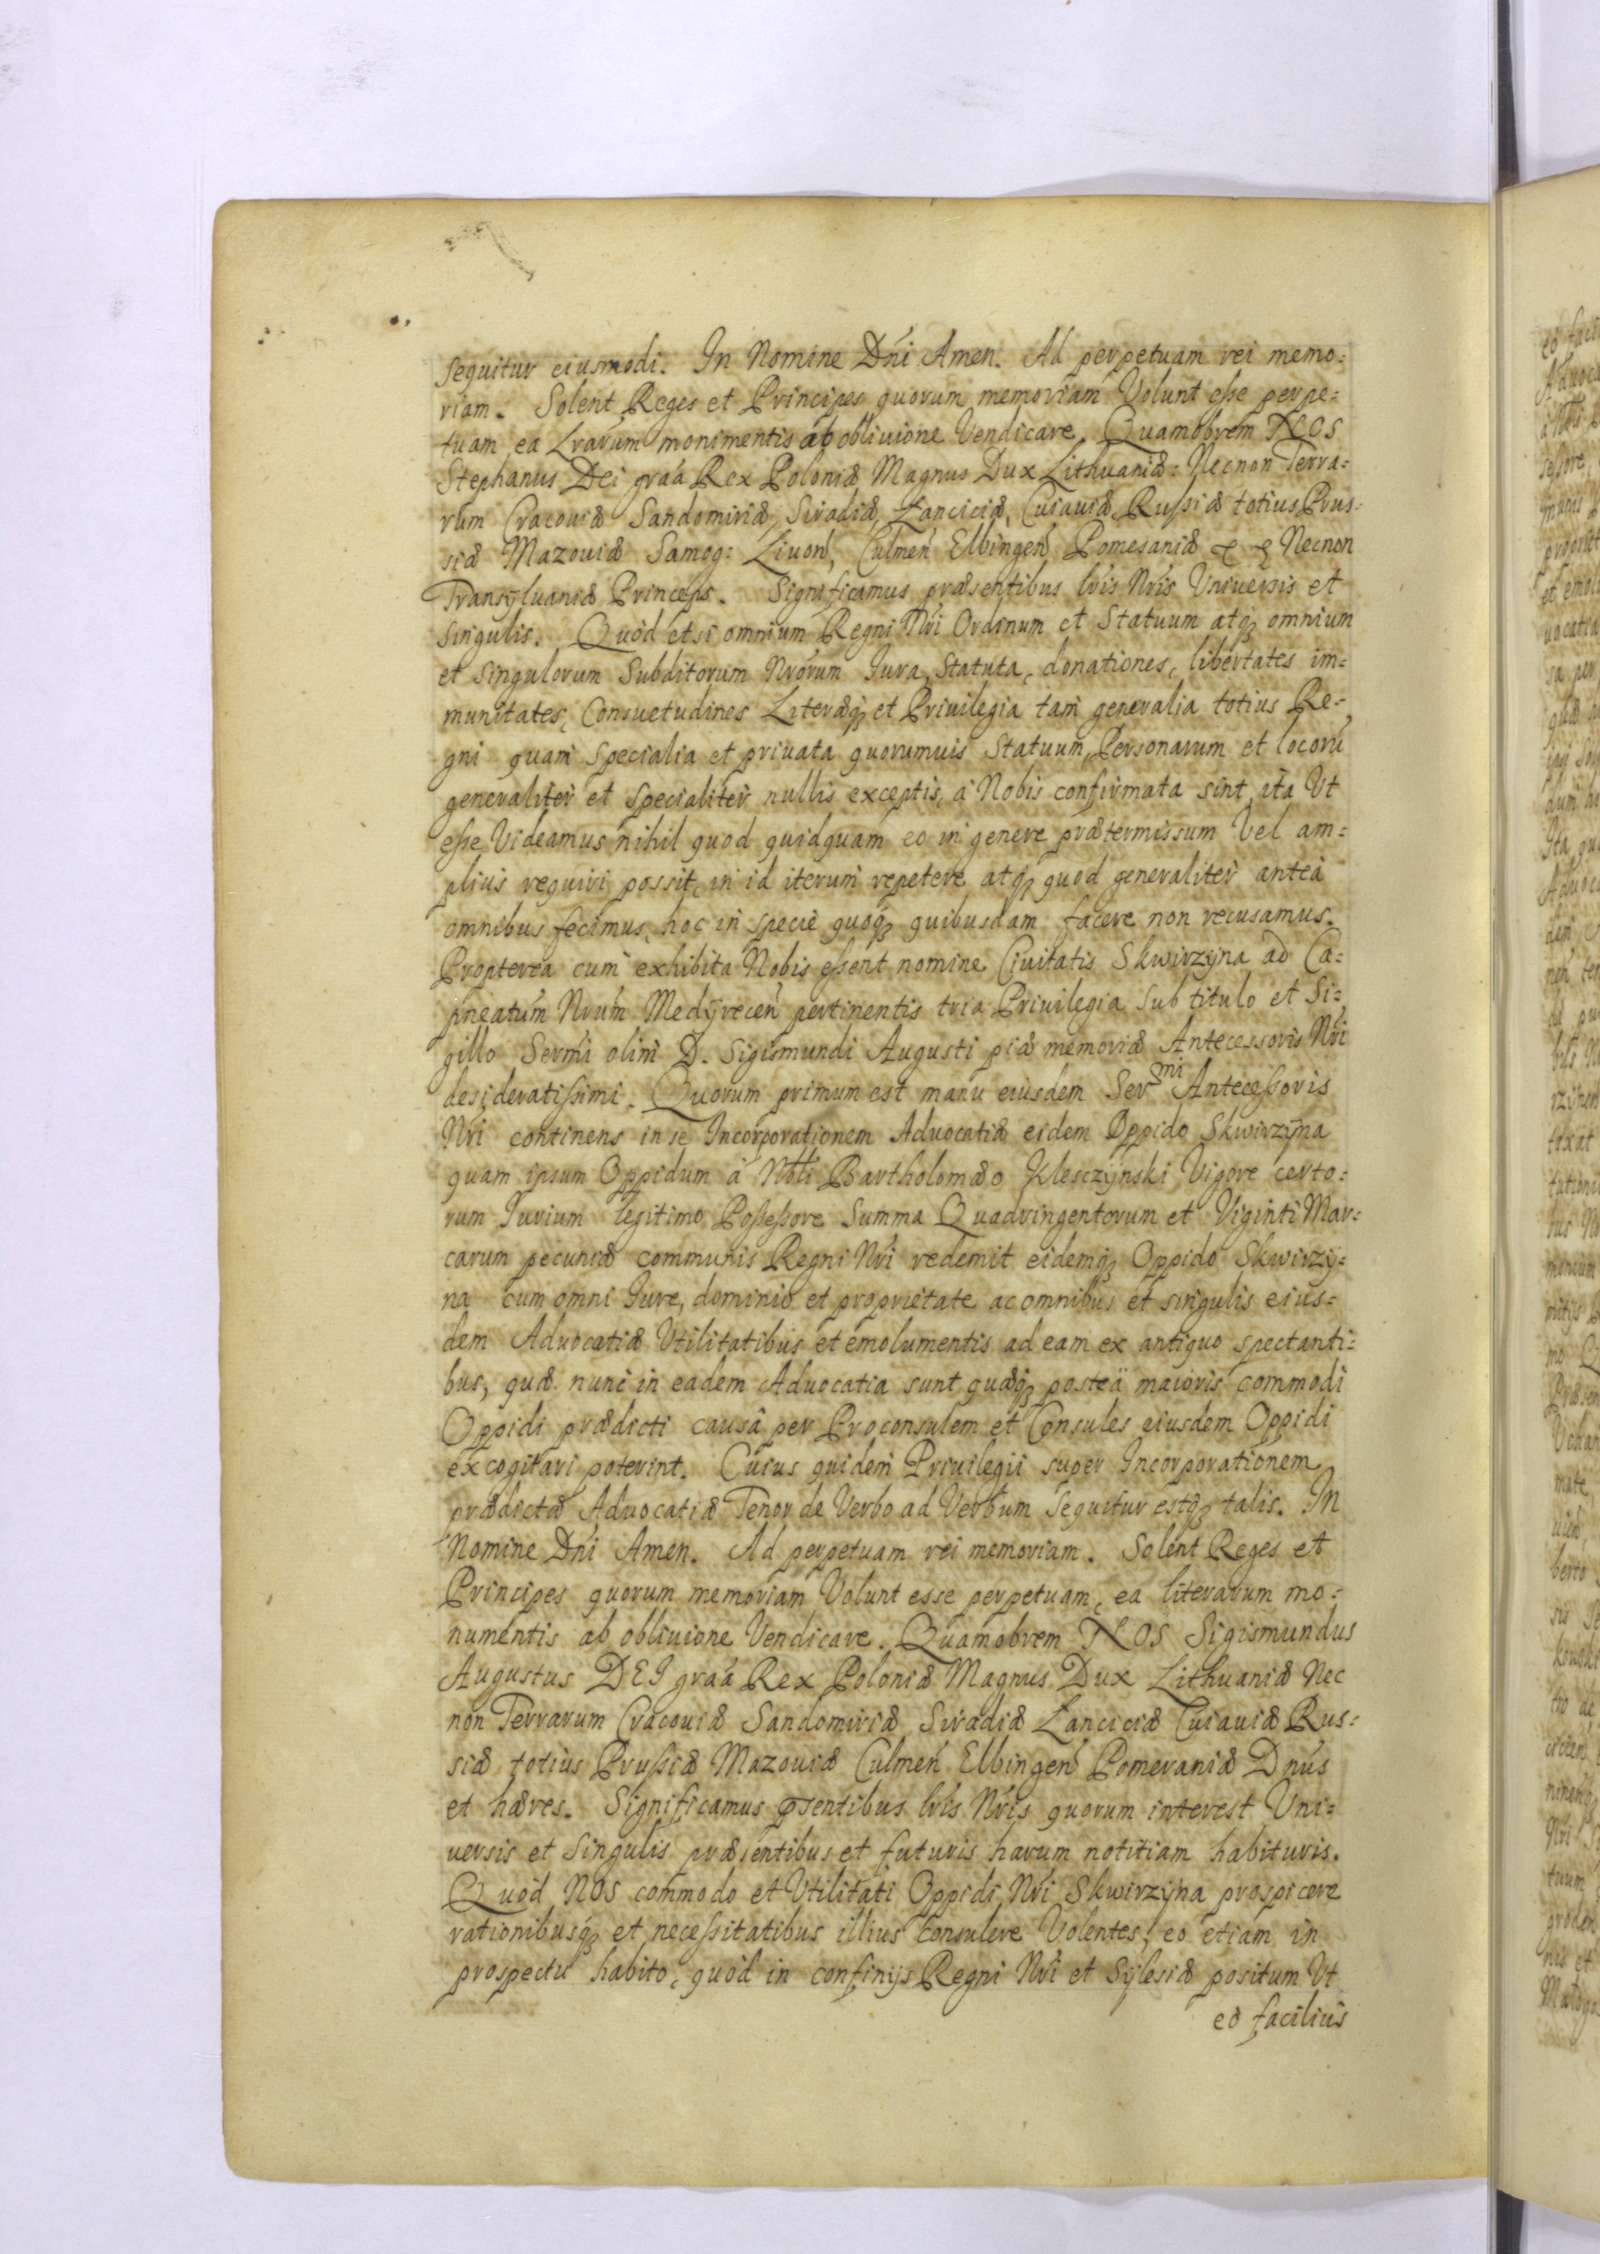 sequitur eiusmodi. In Nomine Dńi Amen. Ad perpetuam rei memo:
riam. Solent Reges et Principes quorum memoriam Volunt eße perpe:
tuam ea Lrarum monimentis ab obliuione Vendicare. Quamobrem NOS
Stephanus Dei graa Rex Poloniæ Magnus Dux Lithuaniæ: Necnon Terra:
rum Cracouiæ Sandomiriæ, Siradiæ, Lanciciæ, Cuiauiæ, Rußiæ totius Prus:
siæ Mazouiæ Samog: Liuoń, Culmeń Elbingeń Pomesaniæ & & Necnon
Transÿluaniæ Princeps. Significamus præsentibus lris Nris Vniuersis et
singulis. Quòd etsi omnium Regni Nri Ordinum et Statuum atq3 omnium
et singulorum Subditorum Nrorum Iura, Statuta, donationes, libertates im=
munitates, Consuetudines Literæq3 et Priuilegia tam generalia totius Re=
gni quam specialia et priuata quorumuis Statuum, Personarum et locorū
generaliter et specialiter nullis exceptis, à Nobis confirmata sint, ita Vt
eße Videamus nihil quod quidquam eo in genere prætermissum Vel am=
plius requiri possit, in id iterum repetere atq3 quod generaliter anteà
omnibus fecimus, hoc in specie quoq3 quibusdam facere non recusamus.
Propterea cum exhibita Nobis eßent nomine Ciuitatis Skwirzÿna ad Ca=
pneatum Nrum Medÿreceń pertinentis tria Priuilegia sub titulo et Si=
gillo Sermi olim D. Sigismundi Augusti piæ memoriæ Antecessoris Nri
desideratißimi. Quorum primum est manu eiusdem Ser^mi Anteceßoris
Nri continens in se Incorporationem Aduocatiæ eidem Oppido Skwirzÿna
quam ipsum Oppidum à Nobli Bartholomæo Klesczÿnski Vigore certo:
rum Iurium legitimo Poßeßore Summa Quadringentorum et Viginti Mar:
carum pecuniæ communis Regni Nri redemit eidemq3 Oppido Skwirzÿ=
na cum omni Iure, dominio et proprietate ac omnibus et singulis eius=
dem Aduocatiæ Vtilitatibus et emolumentis ad eam ex antiquo spectanti=
bus, quæ nunc in eadem Aduocatia sunt quæq3 posteà maioris commodi
Oppidi prædicti causâ per Proconsulem et Consules eiusdem Oppidi
excogitari poterint. Cuius quidem Priuilegii super Incorporationem
prædictæ Aduocatiæ Tenor de Verbo ad Verbum sequitur estq3 talis. In
Nomine Dńi Amen. Ad perpetuam rei memoriam. Solent Reges et
Principes quorum memoriam Volunt esse perpetuam, ea literarum mo=
numentis ab obliuione Vendicare. Quamobrem NOS Sigismundus
Augustus DEI graa Rex Poloniæ Magnus Dux Lithuaniæ Nec
non Terrarum Cracouiæ Sandomiriæ Siradiæ Lanciciæ Cuiauiæ Rus=
siæ totius Prußiæ Mazouiæ Culmeń Elbingeń Pomeraniæ Dnus
et hæres. Significamus p̱sentibus lris Nris quorum interest Vni=
uersis et singulis præsentibus et futuris harum notitiam habituris.
Quòd NOS commodo et Vtilitati Oppidi Nri Skwirzÿna prospicere
rationibusq3 et neceßitatibus illius consulere Volentes, eo etiam in
prospectu habito, quòd in confinÿs Regni Nri et Sÿlesiæ positum Vt
eò facilius